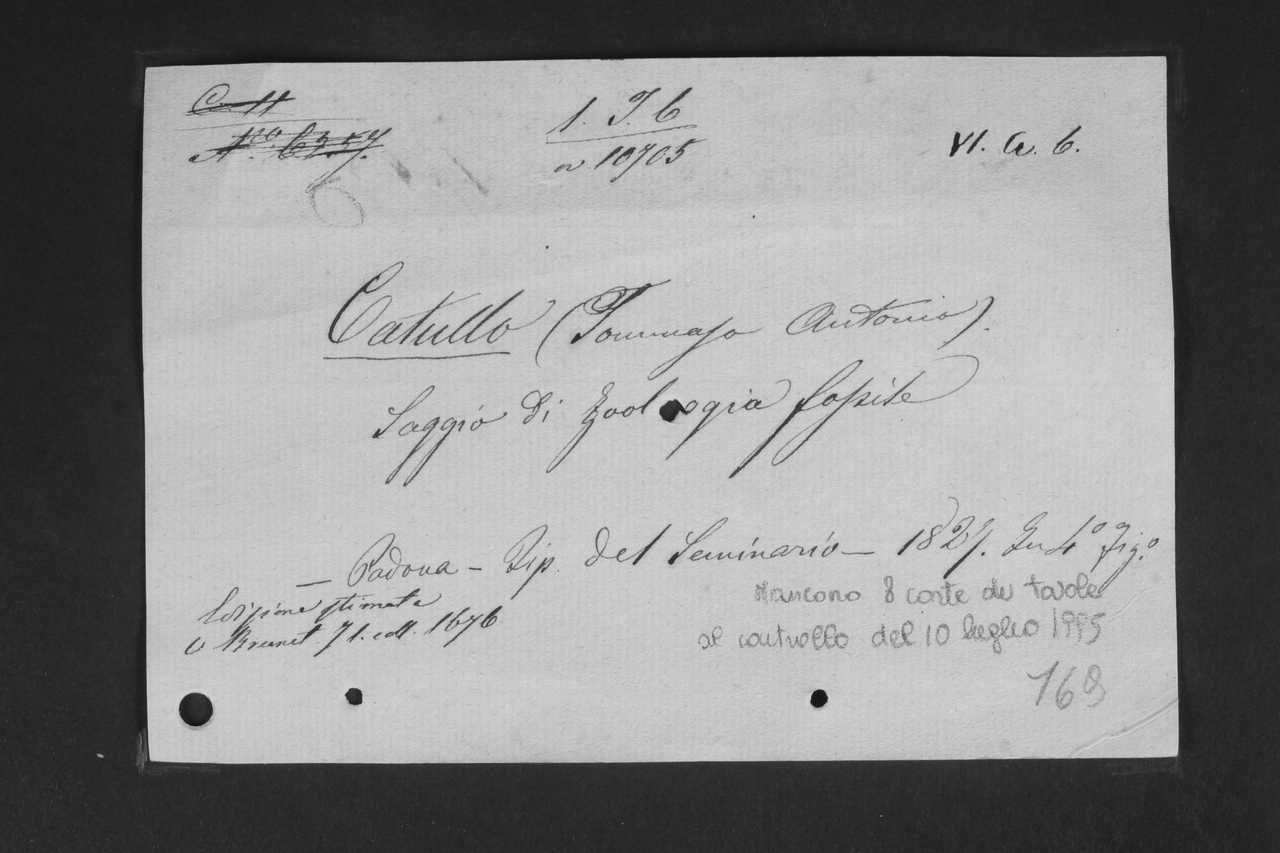 1. T. 6
n 10705
VI. a. 6.
Catullo (Tommaso Antonio).
Saggio di Zoologia fossile
— Padova — Tip. del Seminario — 1827. In 4° fig.°
Edizione stimata
V Brunet T 1. coll. 1676
Mancano 8 carte di tavole
al controllo del 10 luglio 1995
168